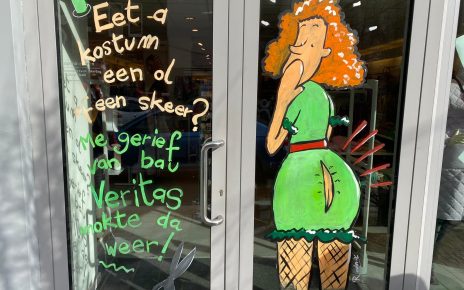 Eet a
kostum
een ol
of een skeer?
Me gerief
van bau
Veritas
mokte da
weer!